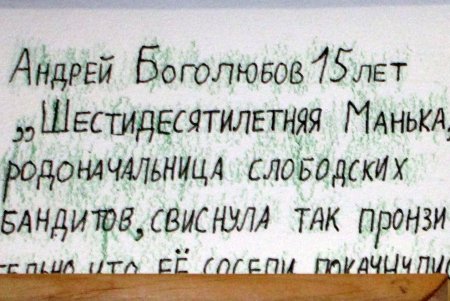 Андрей Боголюбов 15 лет
„Шестидесятилетняя Манька,
родоначальница слободских
бандитов, свиснула так пронзи
тельно что её соседи покачнулись